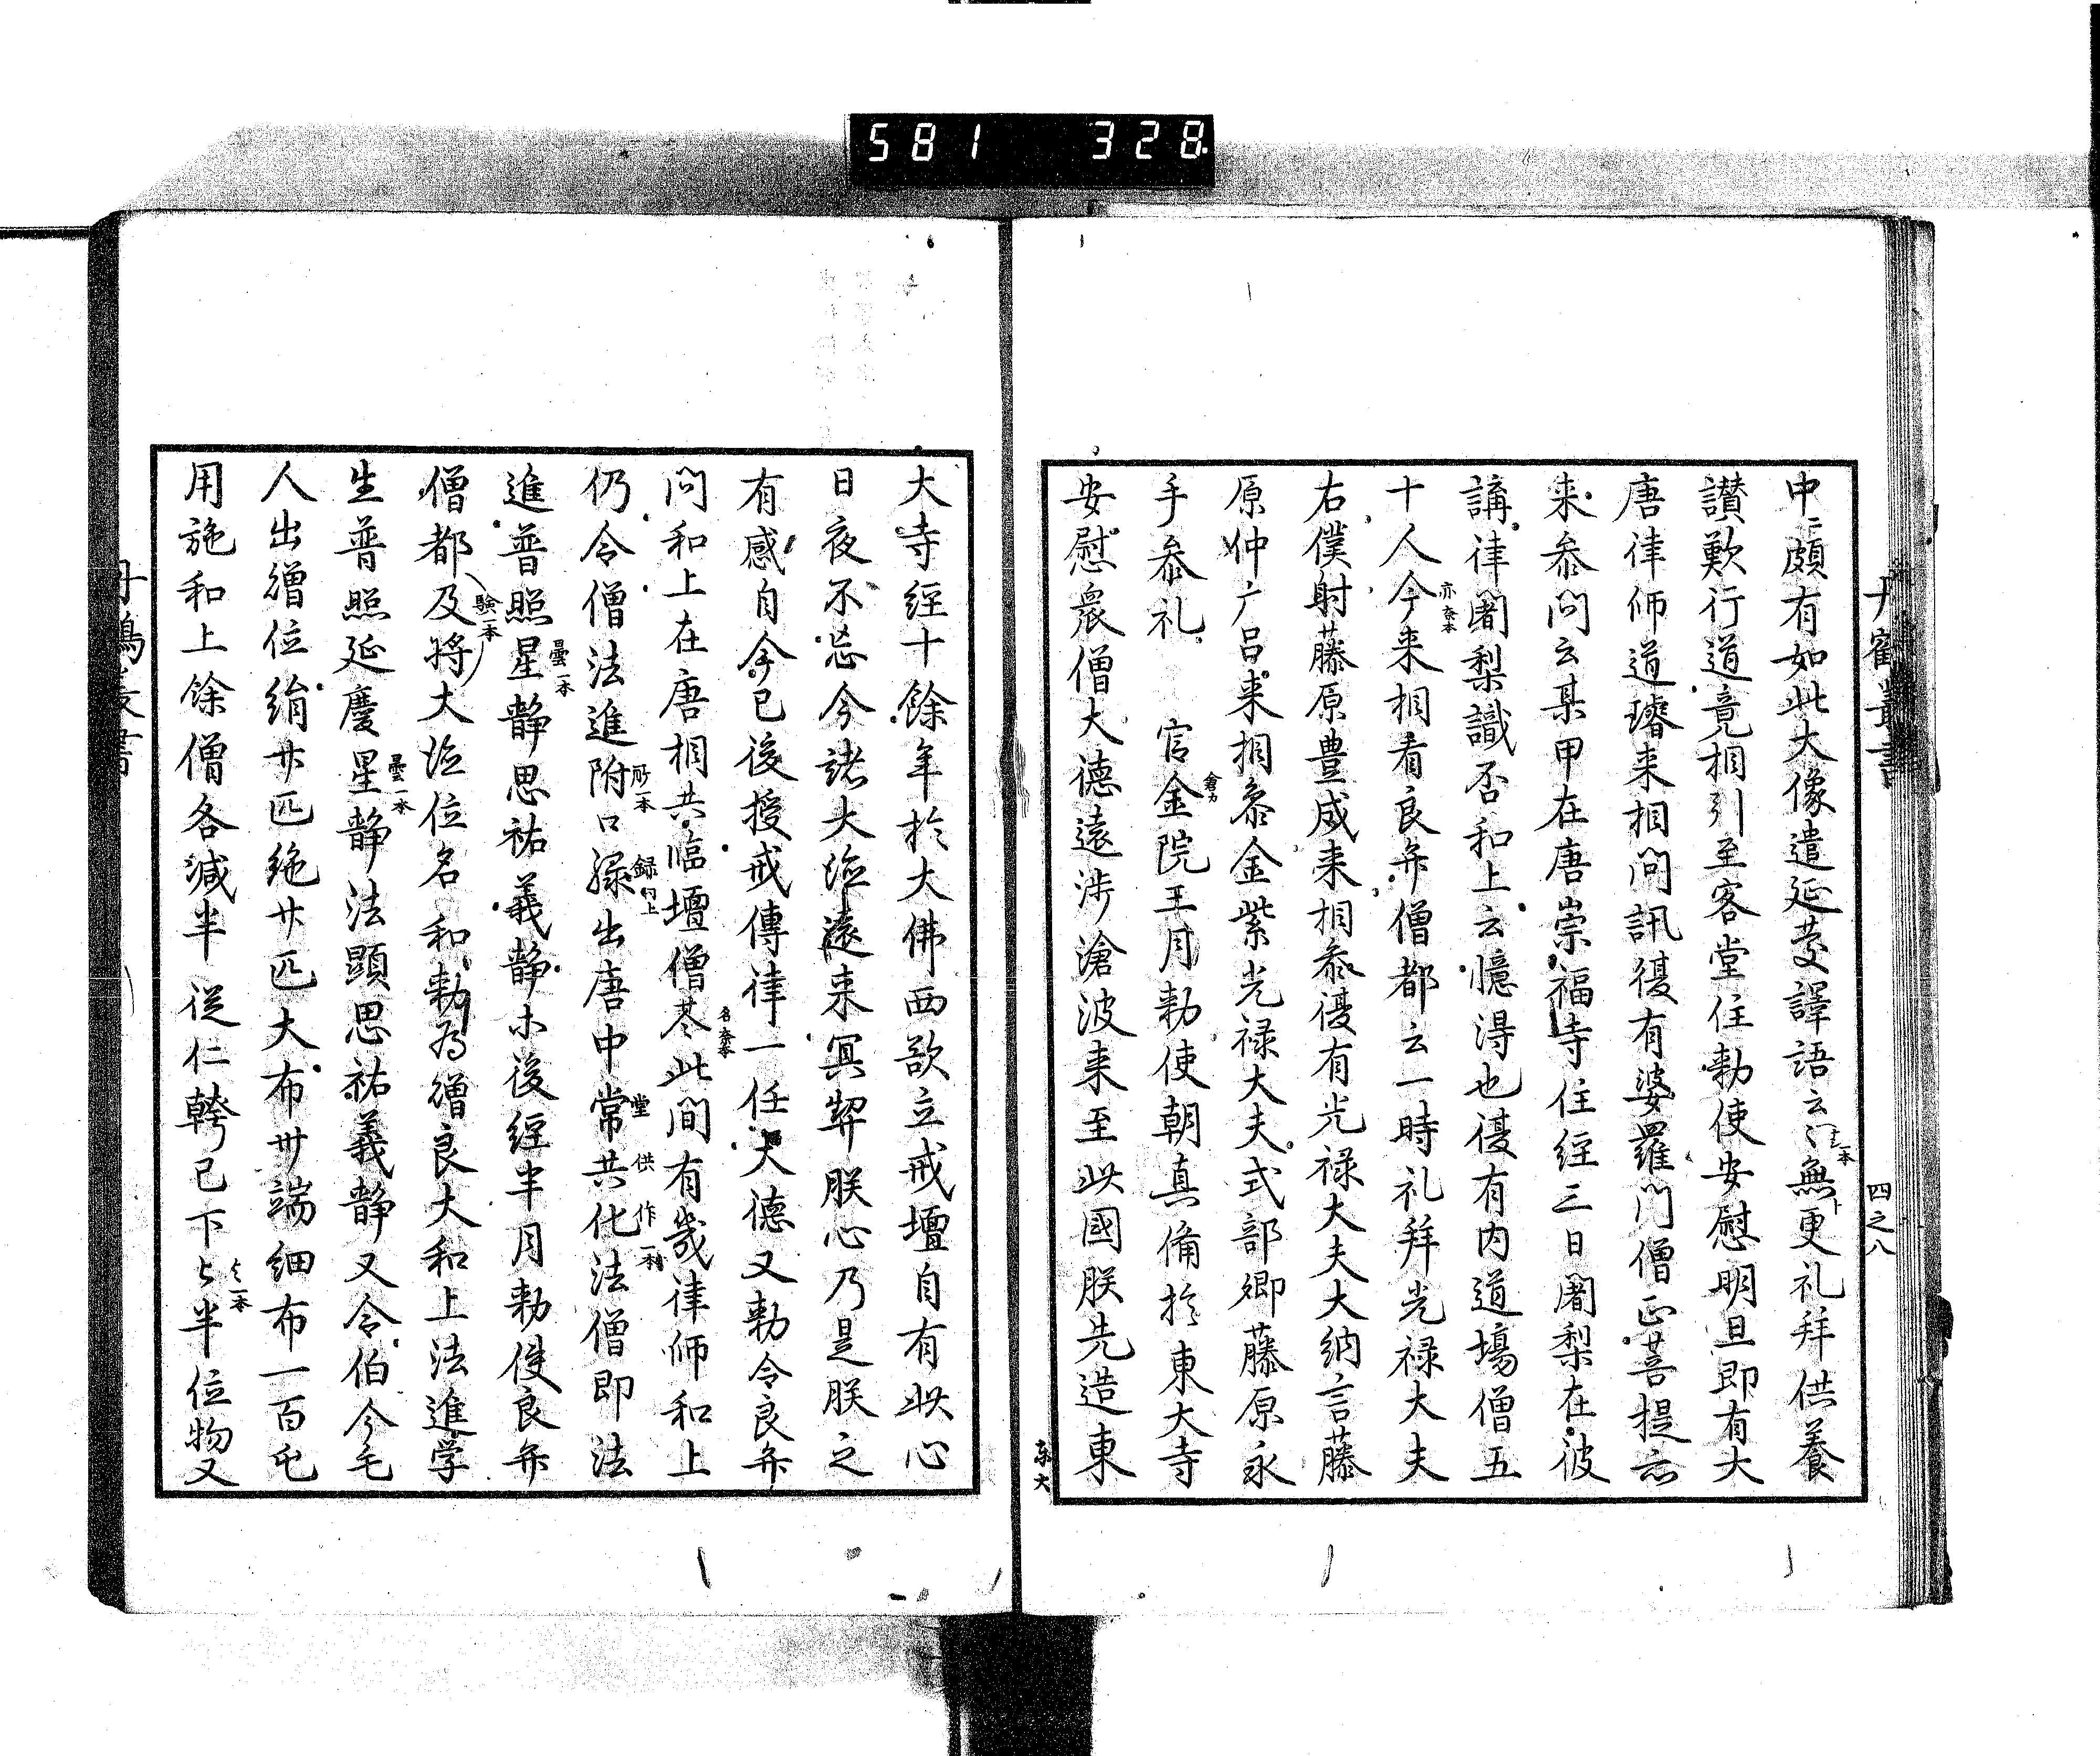 581 328
丹鶴叢書
四之八
中〻頗有如此大像遣延慶譯語云〻無更礼拜供養
十一本
讃歎行道竟相引至客堂住勅使安慰明旦即有大
唐律师道璿来相問訊復有婆羅門僧正菩提亦
来参問云某甲在唐崇福寺住経三日闍梨在彼
講律闍梨識否和上云憶得也復有内道場僧五
十人今来相看良弁僧都云一時礼拜光禄大夫
亦奈本
右僕射藤原豊成来相参復有光禄大夫大納言藤
原仲广呂来相参金紫光禄大夫式部卿藤原永
手参礼 官金院王月勅使朝真俻於東大寺
倉カ
安慰衆僧大德遠涉滄波来至此國朕先造東
东大
大寺経十餘年於大佛西欲立戒壇自有此心
日夜不忘今諸大德遠来冥契朕心乃是朕之
有感自今已後授戒傳律一任大德又勅令良弁
問和上在唐相共臨壇僧荅此間有幾律师和上
名奈本
仍令僧法進附口録出唐中常共化法僧即法
所一本 録同上 堂 供 作一本
進普照星静思祐義静ホ後経半月勅使良弁
曇一本
僧都及将大德位名和勅為僧良大和上法進学
験一本
生普照延慶星静法顕思祐義静又令伯今毛
曇一本
人出僧位絹廿匹絁廿匹大布卅端细布一百屯
用施和上餘僧各減半従仁韓已下与半位物又
与一本
丹鶴叢書